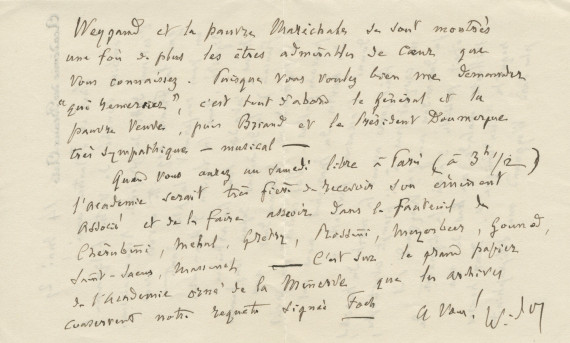 Weygand et la pauvre Maréchale se sont montrés
une fois de plus les êtres admirables de Cœur que
vous connaissez. Puisque vous voulez bien me demander
"qui remercier", c'est tout d'abord le Général et la
pauvre Veuve, puis Briand et le Président Doumergue
très sympathique — musical —
Quand vous aurez un samedi libre à Paris (à 3h 1/2)
l'Académie serait très fière de recevoir son éminent
Associé et de le faire asseoir dans le fauteuil de
Chérubini, Méhul, Grétry, Rossini, Meyerbeer, Gounod,
Saint-Saens, Massenet — C'est sur le grand papier
de l'Académie orné de la Minerve que les archives
conservent notre requête signée Foch
A Vous!